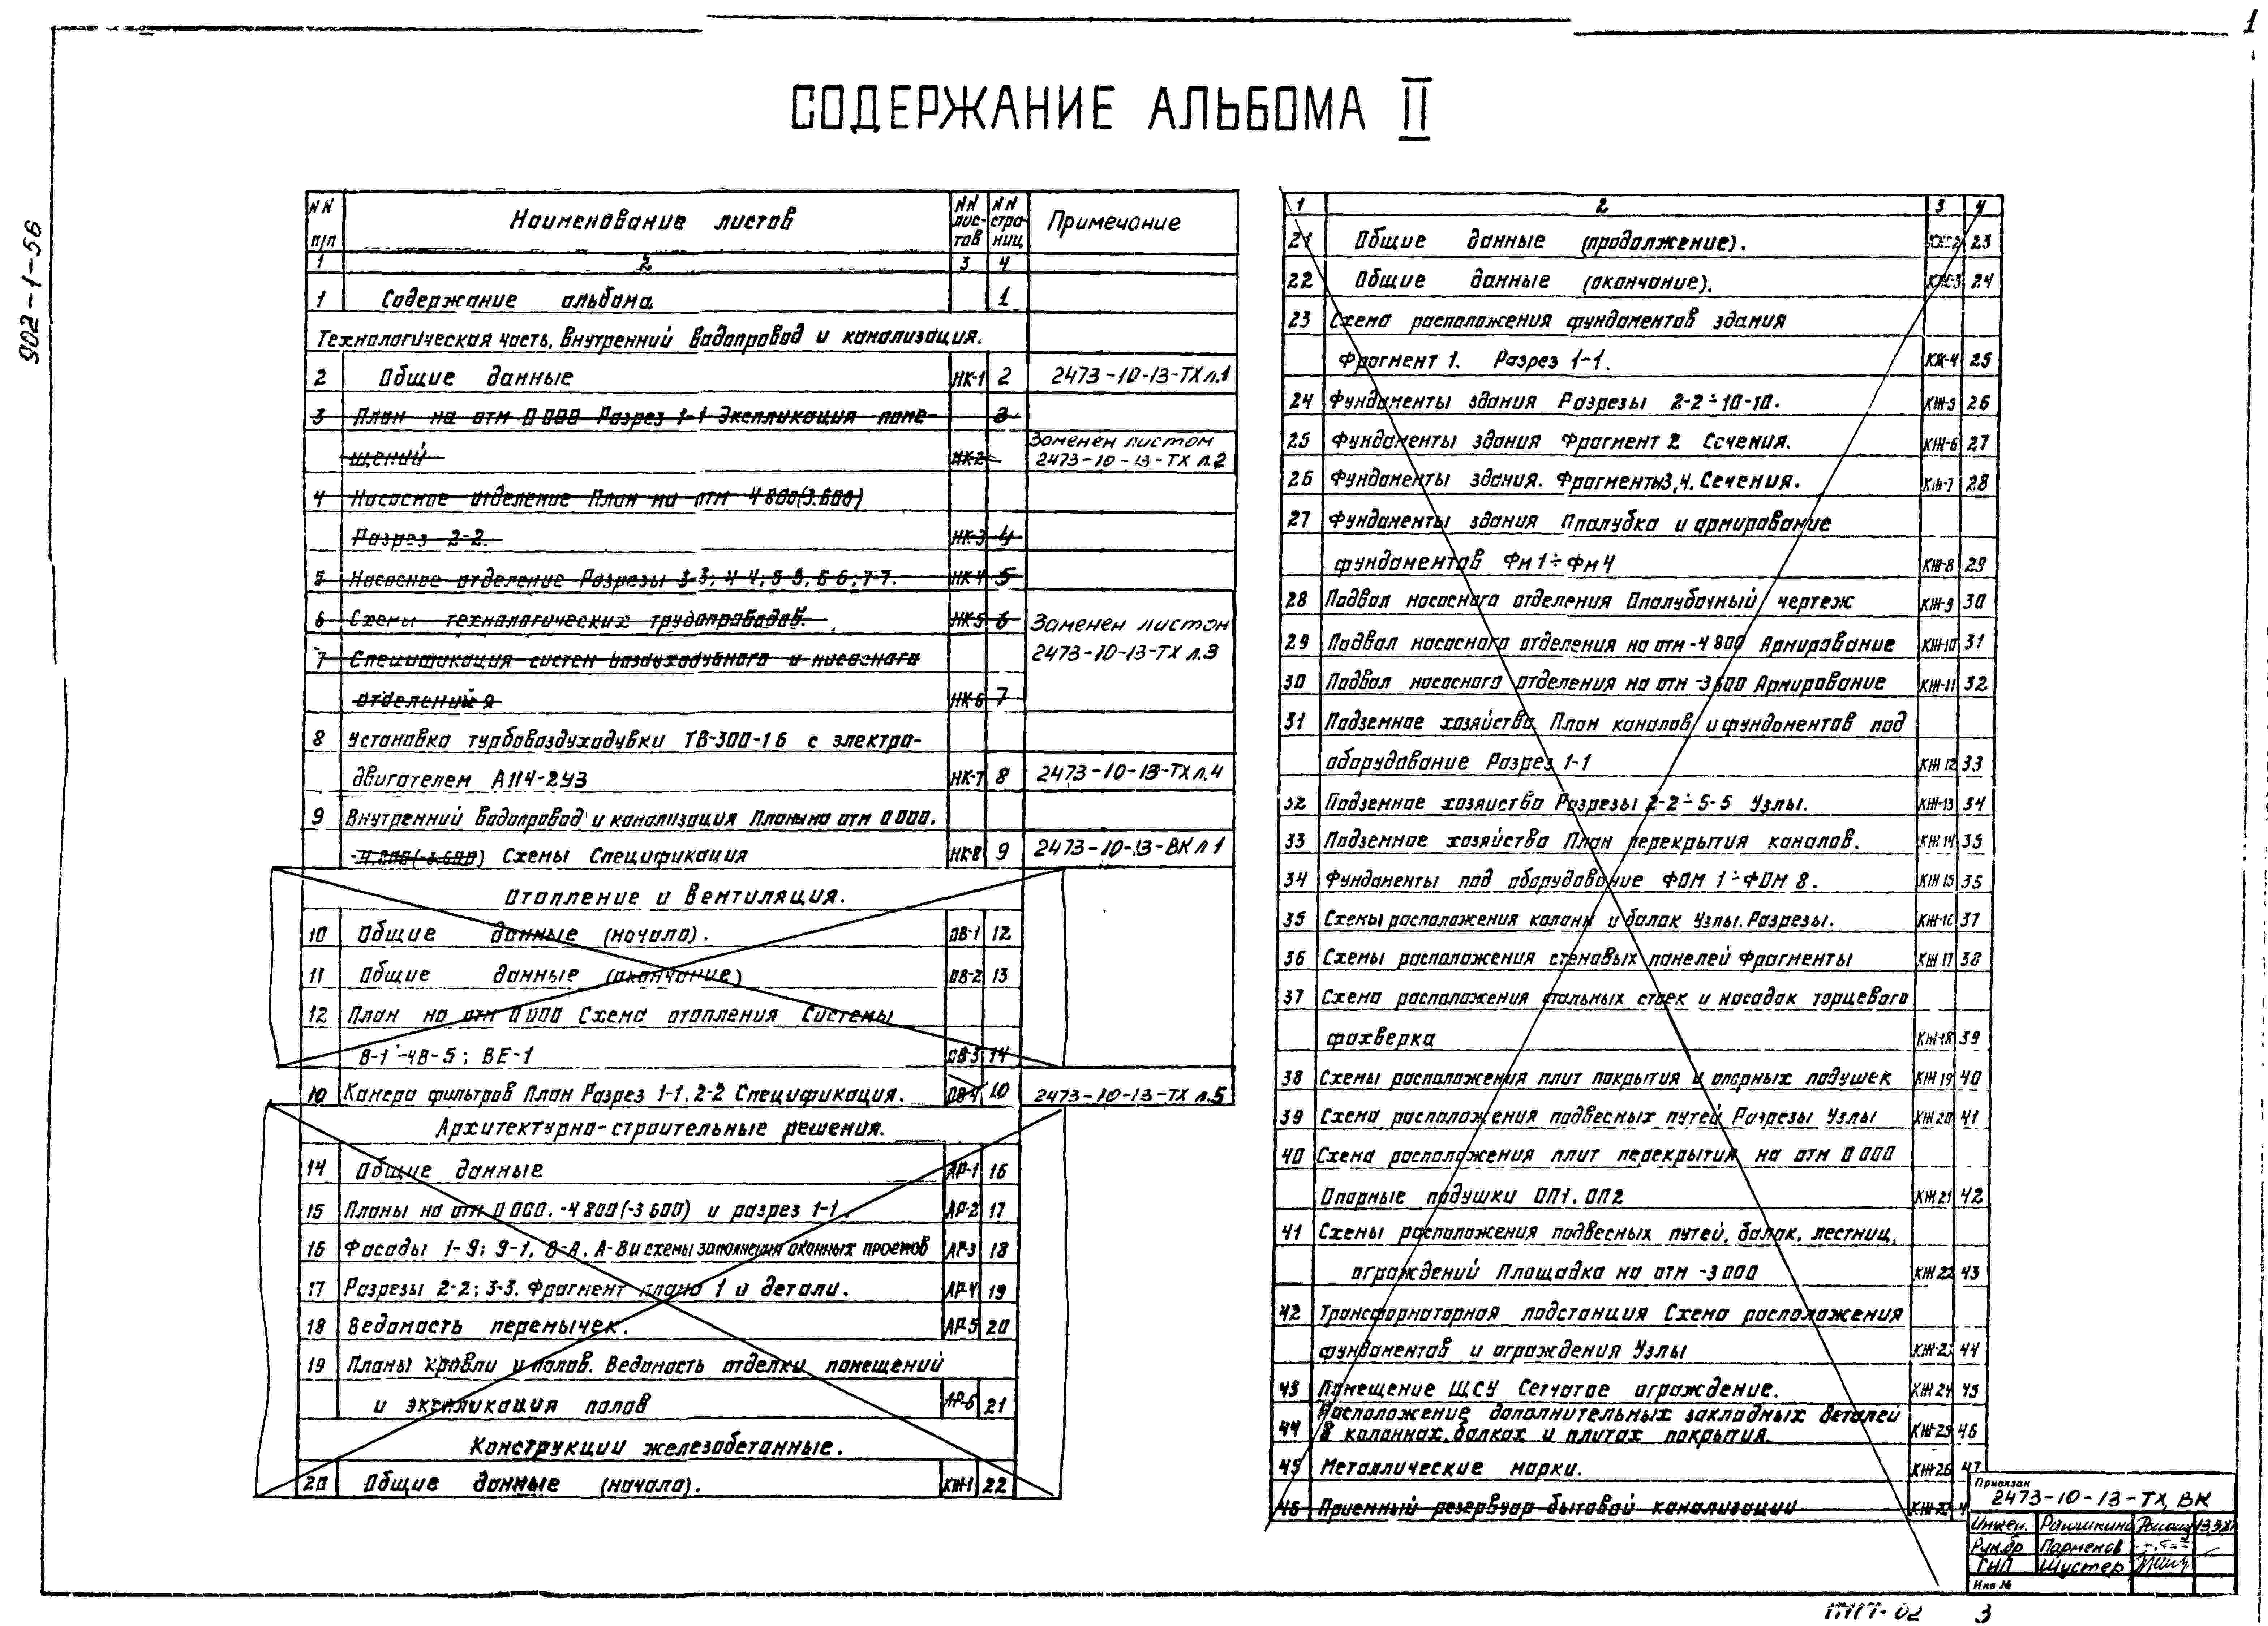 1
902-1-56
СОДЕРЖАНИЕ АЛЬБОМА II
NN п/п Наименование листов NN лис-тов NN стра-ниц Примечание
1 2 3 4
1 Содержание альбома 1
Технологическая часть. Внутренний водопровод и канализация.
2 Общие данные НК-1 2 2473-10-13-ТХ л.1
3 План на отм 0000 Разрез 1-1 Экспликация поме- 3
щений НК-2 Заменен листом 2473-10-13-ТХ л.2
4 Насосное отделение План на отм 4800(3.600)
Разрез 2-2. НК-3 4
5 Насосное отделение Разрезы 3-3; 4-4; 5-5, 6-6; 7-7. НК-4 5
6 Схемы технологических трубопроводов. НК-5 6 Заменен листом
7 Спецификация систем воздуходувного и насосного 2473-10-13-ТХ л.3
отделений НК-6 7
8 Установка турбовоздуходувки ТВ-300-1 6 с электро-
двигателем А114-2У3 НК-7 8 2473-10-13-ТХ л.4
9 Внутренний водопровод и канализация Планы на отм 0000.
-4.800(-3.600) Схемы Спецификация НК-8 9 2473-10-13-ВК л 1
Отопление и вентиляция.
10 Общие данные (начало). ОВ-1 12
11 Общие данные (окончание) ОВ-2 13
12 План на отм 0000 Схема отопления Системы
В-1÷4В-5; ВЕ-1 ОВ-3 14
10 Камера фильтров План Разрез 1-1. 2-2 Спецификация. ОВ-4 10 2473-10-13-ТХ л.5
Архитектурно-строительные решения.
14 Общие данные АР-1 16
15 Планы на отм 0000. -4800(-3600) и разрез 1-1. АР-2 17
16 Фасады 1-9; 9-1, В-А. А-В и схемы заполнения оконных проемов АР-3 18
17 Разрезы 2-2; 3-3. Фрагмент плана 1 и детали. АР-4 19
18 Ведомость перемычек. АР-5 20
19 Планы кровли и полов. Ведомость отделки помещений
и экспликация полов АР-6 21
Конструкции железобетонные.
20 Общие данные (начало). КЖ-1 22
1 2 3 4
21 Общие данные (продолжение). КЖ-2 23
22 Общие данные (окончание). КЖ-3 24
23 Схема расположения фундаментов здания
Фрагмент 1. Разрез 1-1. КЖ-4 25
24 Фундаменты здания Разрезы 2-2÷10-10. КЖ-5 26
25 Фундаменты здания Фрагмент 2 Сечения. КЖ-6 27
26 Фундаменты здания. Фрагменты 3,4. Сечения. КЖ-7 28
27 Фундаменты здания Опалубка и армирование
фундаментов Фм1÷Фм4 КЖ-8 29
28 Подвал насосного отделения Опалубочный чертеж КЖ-9 30
29 Подвал насосного отделения на отм -4800 Армирование КЖ-10 31
30 Подвал насосного отделения на отм -3600 Армирование КЖ-11 32
31 Подземное хозяйство План каналов и фундаментов под
оборудование Разрез 1-1 КЖ 12 33
32 Подземное хозяйство Разрезы 2-2÷5-5 Узлы. КЖ-13 34
33 Подземное хозяйство План перекрытия каналов. КЖ 14 35
34 Фундаменты под оборудование ФОМ 1÷ФОМ 8. КЖ 15 35
35 Схемы расположения колонн и балок Узлы. Разрезы. КЖ-16 37
36 Схемы расположения стеновых панелей Фрагменты КЖ 17 38
37 Схема расположения стальных стоек и насадок торцевого
фахверка КЖ-18 39
38 Схемы расположения плит покрытия и опорных подушек КЖ 19 40
39 Схема расположения подвесных путей Разрезы Узлы КЖ 20 41
40 Схема расположения плит перекрытия на отм 0000
Опорные подушки ОП1. ОП2 КЖ 21 42
41 Схемы расположения подвесных путей, балок, лестниц,
ограждений Площадка на отм -3000 КЖ 22 43
42 Трансформаторная подстанция Схема расположения
фундаментов и ограждения Узлы КЖ-23 44
43 Помещение ЩСУ Сетчатое ограждение. КЖ 24 45
44 Расположение дополнительных закладных деталей
в колоннах, балках и плитах покрытия. КЖ-25 46
45 Металлические марки. КЖ-26 47
46 Приемный резервуар бытовой канализации
Привязан
2473-10-13-ТХ, ВК
Инжен. Рамшкина
Рук.бр Парменов
ГИП Шустер
Инв №
3